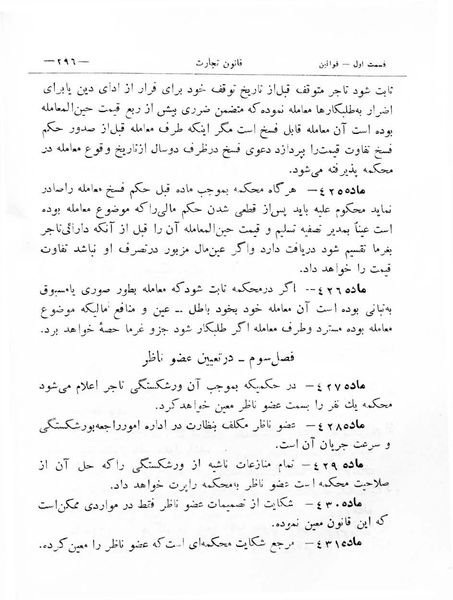 قسمت اول — قوانین
قانون تجارت
—۲۹۶—
ثابت شود تاجر متوقف قبل‌از تاریخ توقف خود برای فرار از ادای دین یا برای
اضرار به‌طلبکارها معامله نموده‌که متضمن ضرری بیش از ربع قیمت حین‌المعامله
بوده است آن معامله قابل فسخ است مگر اینکه طرف معامله قبل‌از صدور حکم
فسخ تفاوت قیمت‌را بپردازد دعوی فسخ درظرف دوسال ازتاریخ وقوع معامله در
محکمه پذیرفته می‌شود.
ماده۴۲۵— هرگاه محکمه بموجب ماده قبل حکم فسخ معامله راصادر
نماید محکوم علیه باید پس‌از قطعی شدن حکم مالی‌راکه موضوع معامله بوده
است عیناً بمدیر تصفیه تسلیم و قیمت حین‌المعامله آن را قبل از آنکه دارائی‌تاجر
بغرما تقسیم شود دریافت دارد واگر عین‌مال مزبور درتصرف او نباشد تفاوت
قیمت را خواهد داد.
ماده۴۲۶— اگر درمحکمه ثابت شودکه معامله بطور صوری یامسبوق
به‌تبانی بوده است آن معامله خود بخود باطل ــ عین و منافع مالیکه موضوع
معامله بوده مسترد وطرف معامله اگر طلبکار شود جزو غرما حصهٔ خواهد برد.
فصل‌سوم ــ درتعیین عضو ناظر
ماده۴۲۷— در حکمیکه بموجب آن ورشکستگی تاجر اعلام می‌شود
محکمه یك نفر را بسمت عضو ناظر معین خواهدکرد.
ماده۴۲۸— عضو ناظر مکلف بنظارت در اداره امورراجعه‌بورشکستگی
و سرعت جریان آن است.
ماده ۴۲۹— تمام منازعات ناشیه از ورشکستگی راکه حل آن از
صلاحیت محکمه است عضو ناظر به‌محکمه راپرت خواهد داد.
ماده۴۳۰— شکایت از تصمیمات عضو ناظر فقط در مواردی ممکن‌است
که این قانون معین نموده.
ماده۴۳۱— مرجع شکایت محکمه‌ای است‌که عضو ناظر را معین‌کرده.